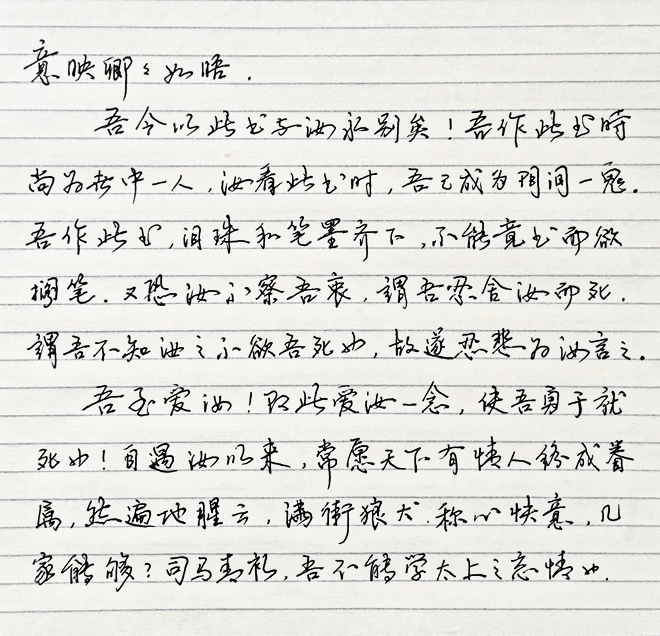 意映卿々如晤.
吾今以此书与汝永别矣！吾作此书時
尚为世中一人,汝看此书时,吾已成为阴间一鬼.
吾作此书,泪珠和笔墨齐下,不能竟书而欲
搁笔.又恐汝不察吾衷,謂吾忍舍汝而死.
謂吾不知汝之不欲吾死也,故遂忍悲为汝言之.
吾至爱汝！即此爱汝一念,使吾勇于就
死也！自遇汝以来,常愿天下有情人终成眷
属,然遍地腥云,满街狼犬.称心快意,几
家能够？司马青衫,吾不能学太上之忘情也.